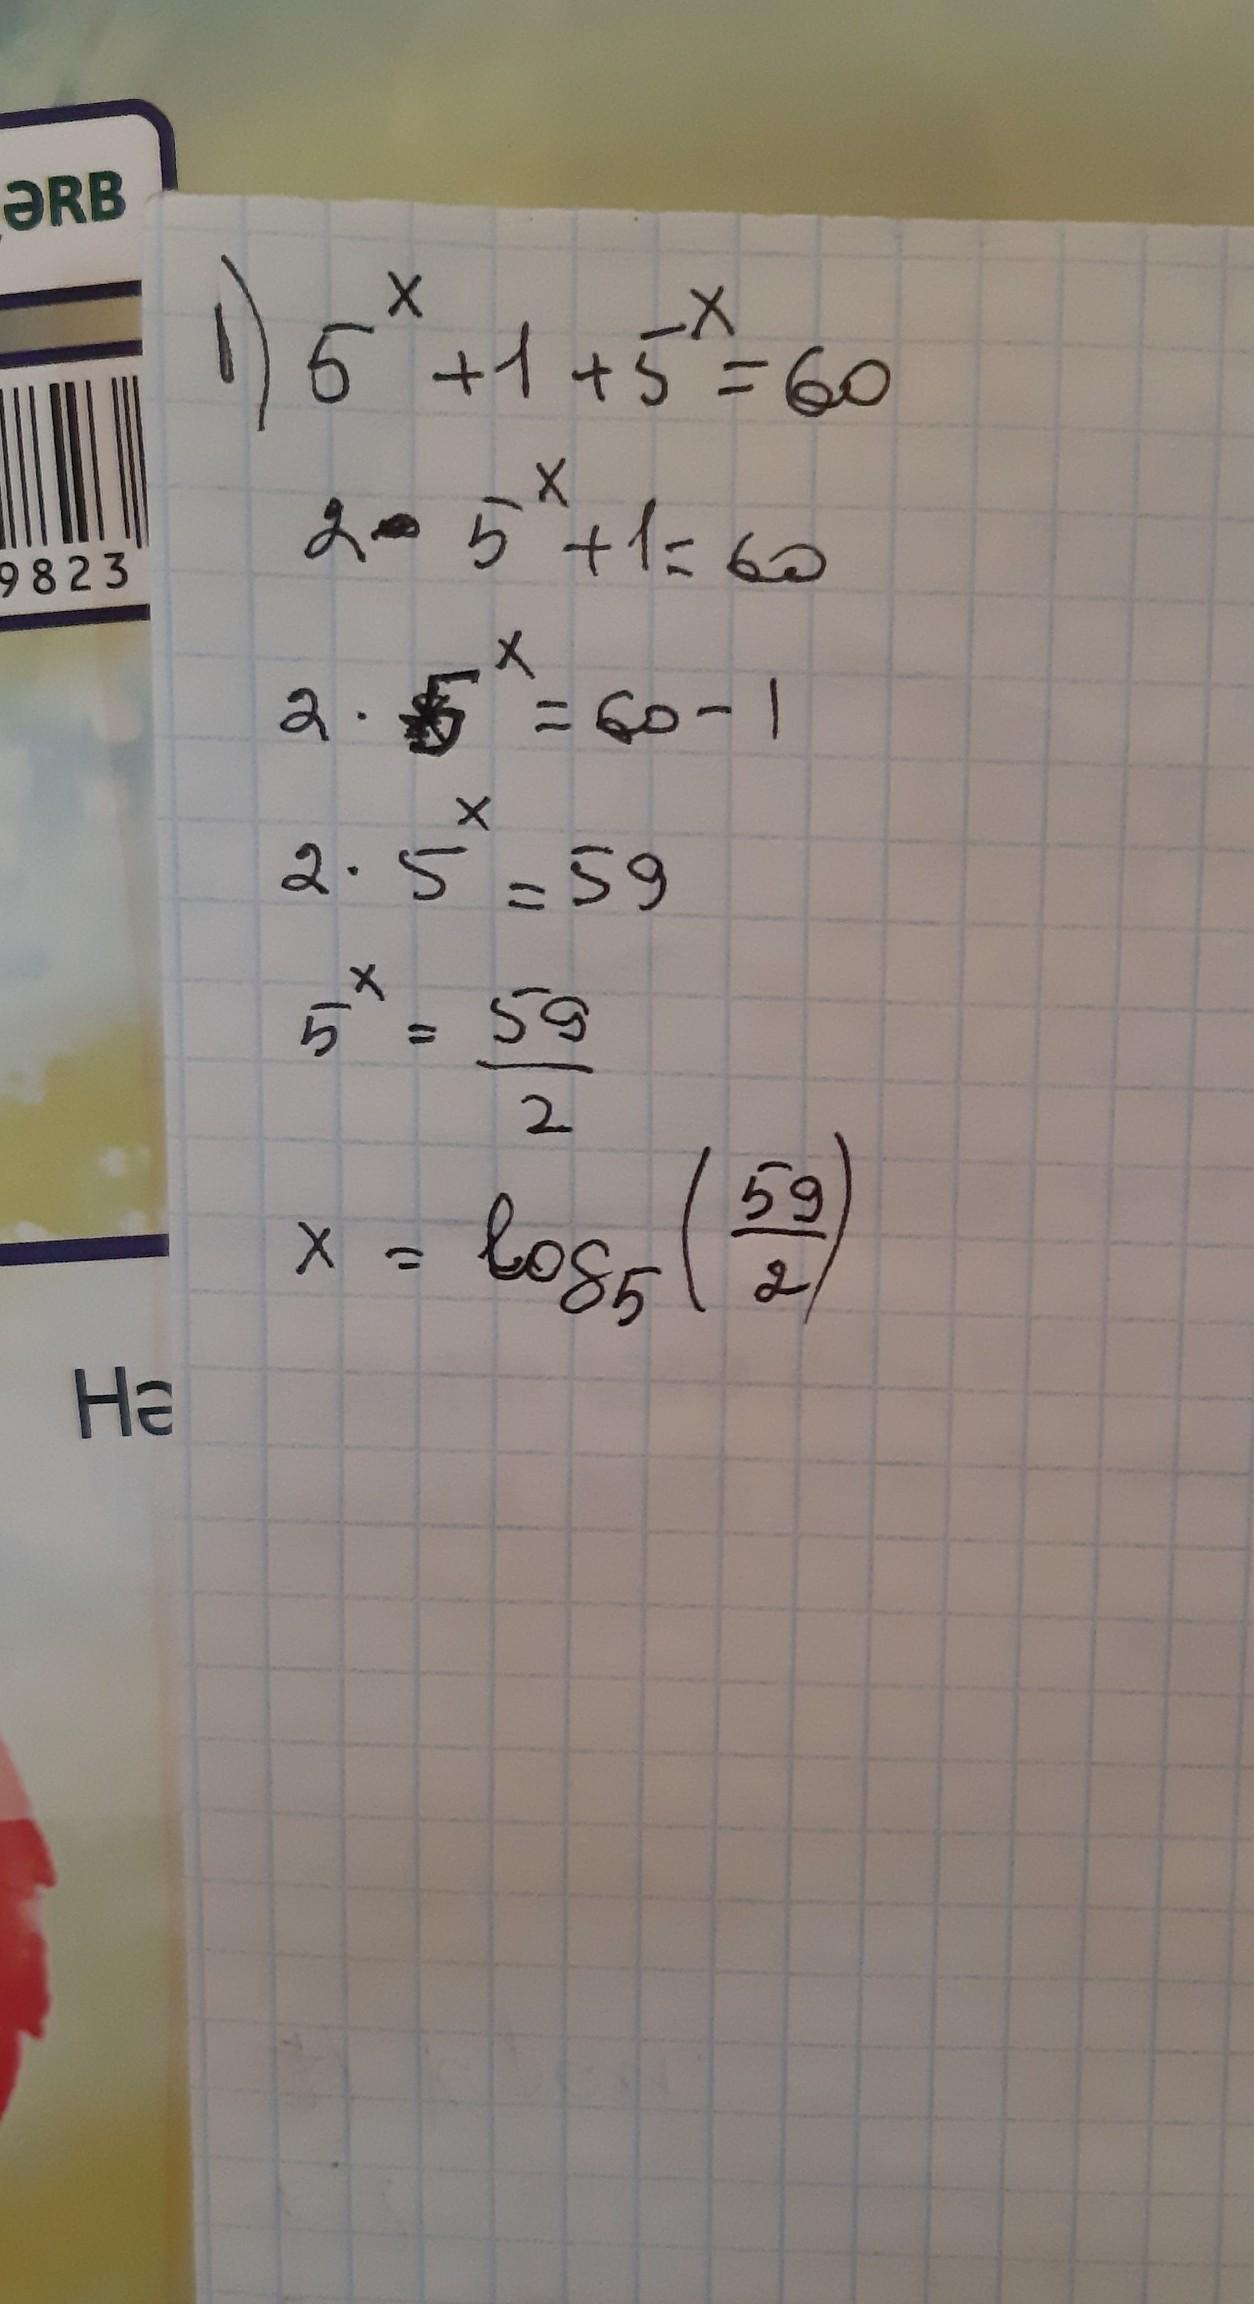 ƏRB
9823
1) 5^x + 1 + 5^x = 60
2 · 5^x + 1 = 60
2 · 5^x = 60 - 1
2 · 5^x = 59
5^x = 59/2
x = log₅(59/2)
Hə